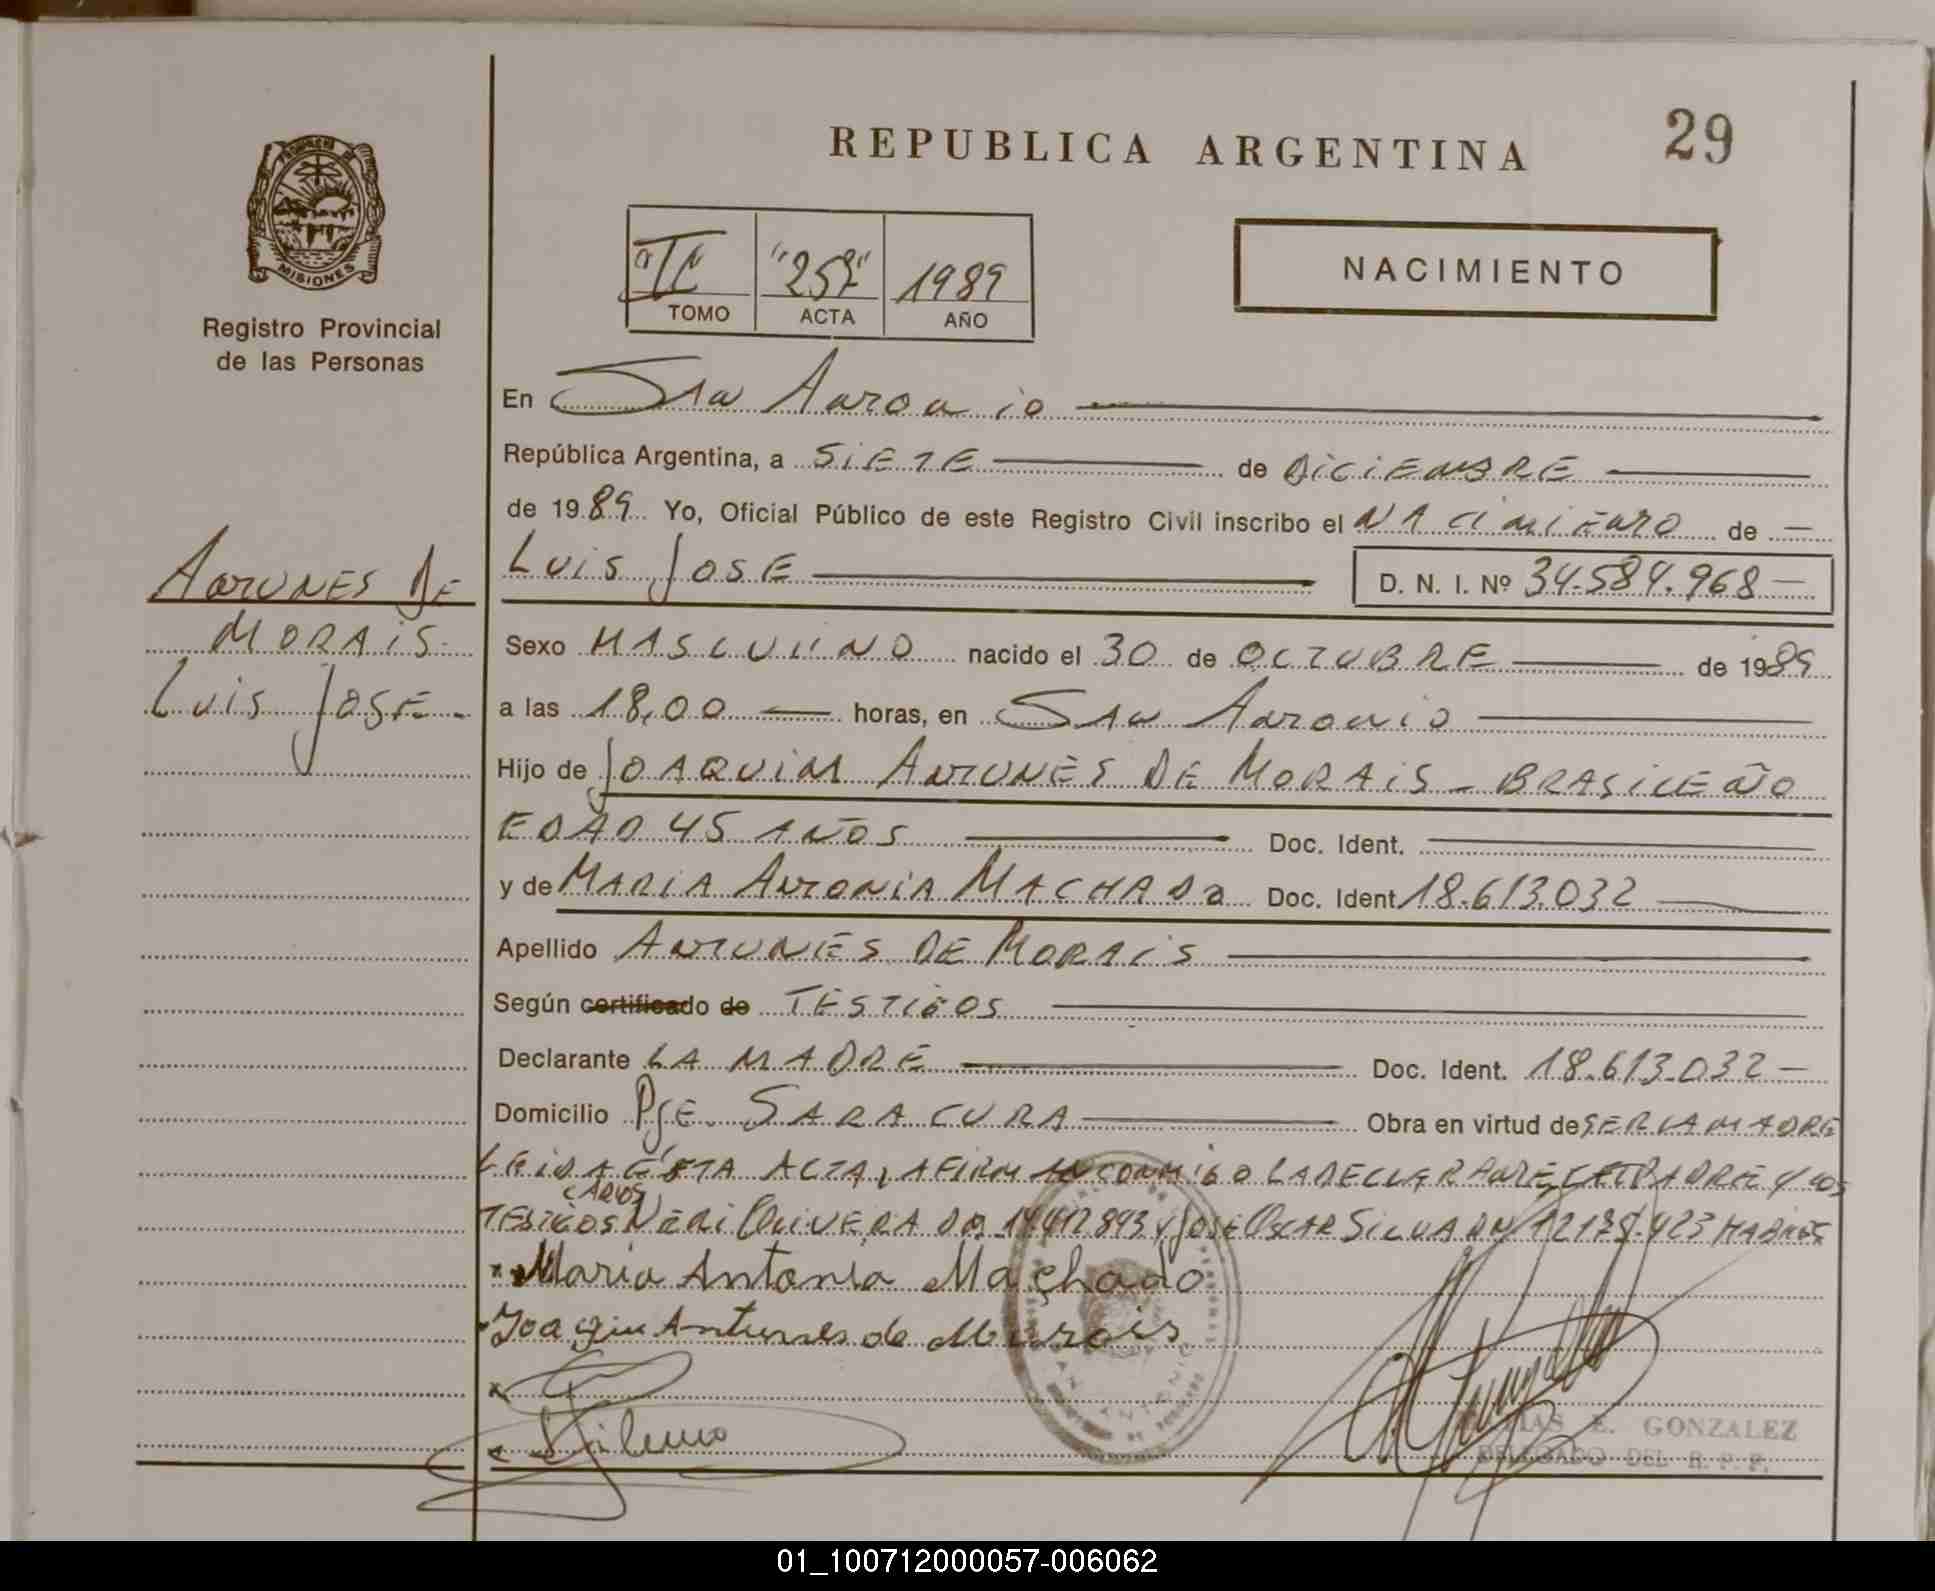 REPUBLICA ARGENTINA
29
PROVINCIA DE
MISIONES
Registro Provincial
de las Personas
"II" "257" 1989
TOMO ACTA AÑO
NACIMIENTO
En San Antonio
República Argentina, a SIETE de DICIEMBRE
de 1989 Yo, Oficial Público de este Registro Civil inscribo el NACIMIENTO de
LUIS JOSE
D. N. I. Nº 34.584.968
ANTUNES DE
MORAIS
LUIS JOSE
Sexo MASCULINO nacido el 30 de OCTUBRE de 1989
a las 18,00 horas, en San Antonio
Hijo de JOAQUIM ANTUNES DE MORAIS - BRASILEÑO
EDAD 45 AÑOS Doc. Ident.
y de MARIA ANTONIA MACHADO Doc. Ident 18.613.032
Apellido ANTUNES DE MORAIS
Según certificado de TESTIGOS
Declarante LA MADRE Doc. Ident. 18.613.032
Domicilio Pje. SARACURA Obra en virtud de SER LA MADRE
LEIDA ESTA ACTA, AFIRMAN CONMIGO LA DECLARANTE, EL PADRE Y LOS
TESTIGOS CARLOS NERI OLIVERA Y JOSE OSCAR SILVA
Maria Antonia Machado
Joaquin Antunes de Morais
Silva
E. GONZALEZ
DELEGADO DEL R. P. P.
01_100712000057-006062